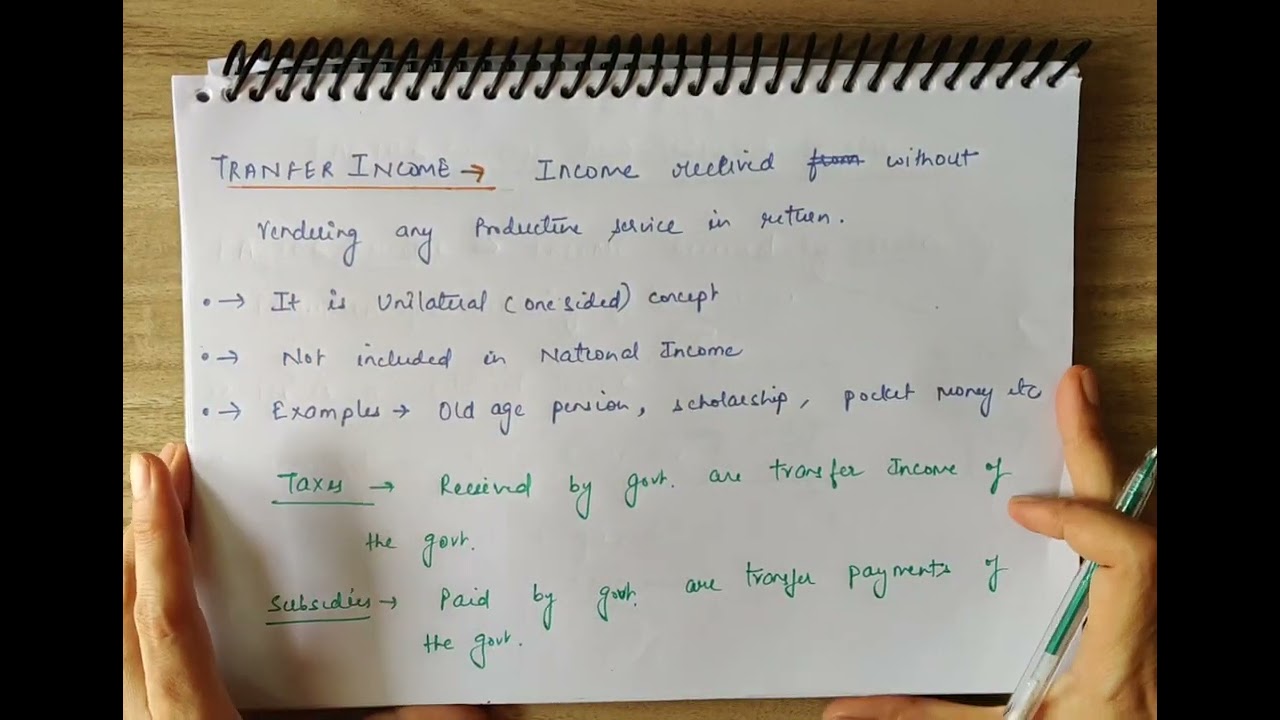 TRANFER INCOME → Income received from without
rendering any Productive service in return.
• → It is Unilateral (one sided) concept
• → Not included in National Income
• → Examples → Old age pension, scholarship, pocket money etc
Taxes → Received by govt. are transfer Income of
the govt.
Subsidies → Paid by govt. are transfer payments of
the govt.